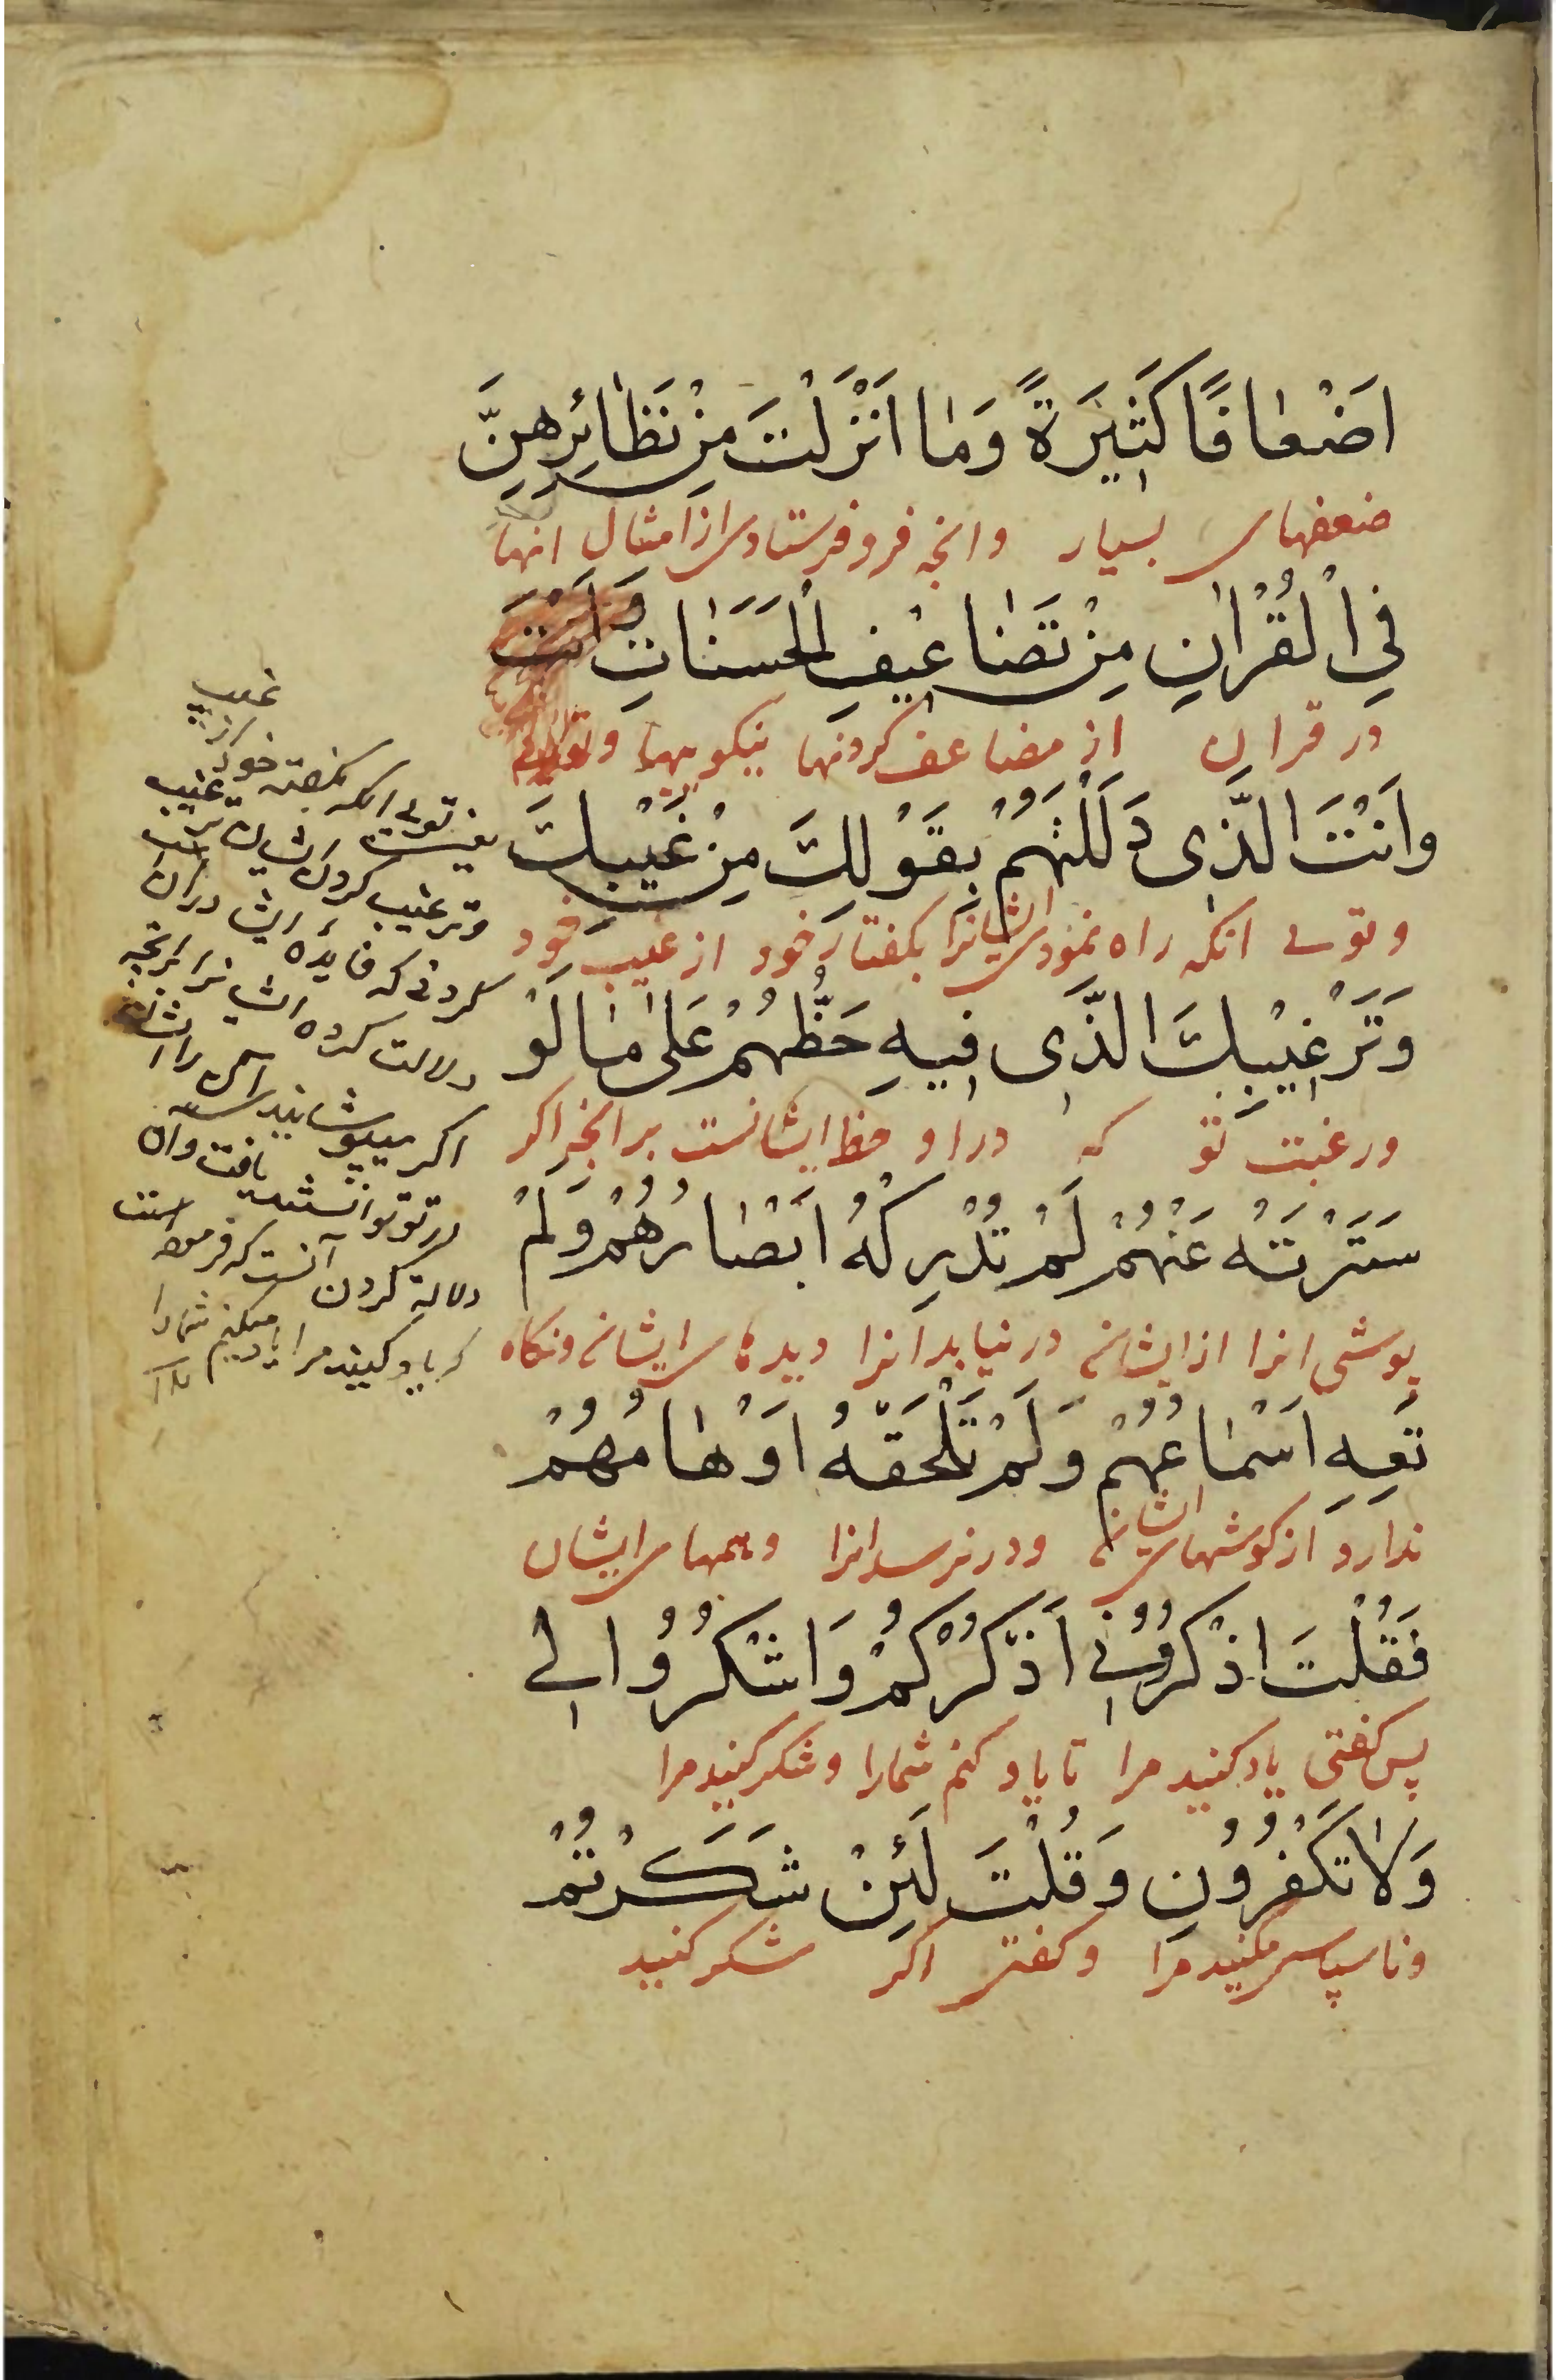 اَضْعافًا كَثيَرةً وَمٰا اَنْزَلْتَ مِنْ نَظٰائِرِهِنَّ
ضعفهای بسیار وانچه فرو فرستادی از امثال انها
فِي الْقُرْاٰنِ مِنْ تَضٰاعيْفِ الْحَسَنٰاتِ وَاَنْتَ
در قران از مضاعف کردنها نیکوییها
وَاَنْتَ الَّذِى دَلَلْتَهُمْ بِقَوْلِكَ مِنْ غَيْبِكَ
و توئی انکه راه نمودی ایشانرا بکفتار خود از غیب خود
وَتَرْغيْبِكَ الَّذِى فيهِ حَظُّهُمْ عَلىٰ مٰا لَوْ
ورغبت تو که در او حظ ایشانست بر انچه اکر
سَتَرْتَهُ عَنْهُمْ لَمْ تُدْرِكْهُ اَبْصٰارُهُمْ وَلَمْ
پوشی انرا از ایشان در نیابد انرا دیدهای ایشان و نکاه
تَعِهِ اَسْمٰاعُهُمْ وَلَمْ تَلْحَقْهُ اَوْهٰامُهُمْ
ندارد از کوشهای ایشان و در نرسد انرا وهمهای ایشان
فَقُلْتَ اذْكُرُوُنى اَذْكُرْكُمْ وَاشْكُرُوُا لى
پس کفتی یاد کنید مرا تا یاد کنم شمارا و شکر کنید مرا
وَلاٰ تَكْفُرُوُنِ وَقُلْتَ لَئِنْ شَكَرْتُمْ
و ناسپاسی مکنید مرا و کفتی اکر شکر کنید
غیب
یعنی توئی انکه بکفته خود از
وترغیب کردن ایشان
کردنی که فایده ایشان دران
دلالت کرده ایشانرا برانچه
اکر میپوشانید
دلالة کردن آنست که فرموده
که یاد کنید مرا یاد میکنم شما را